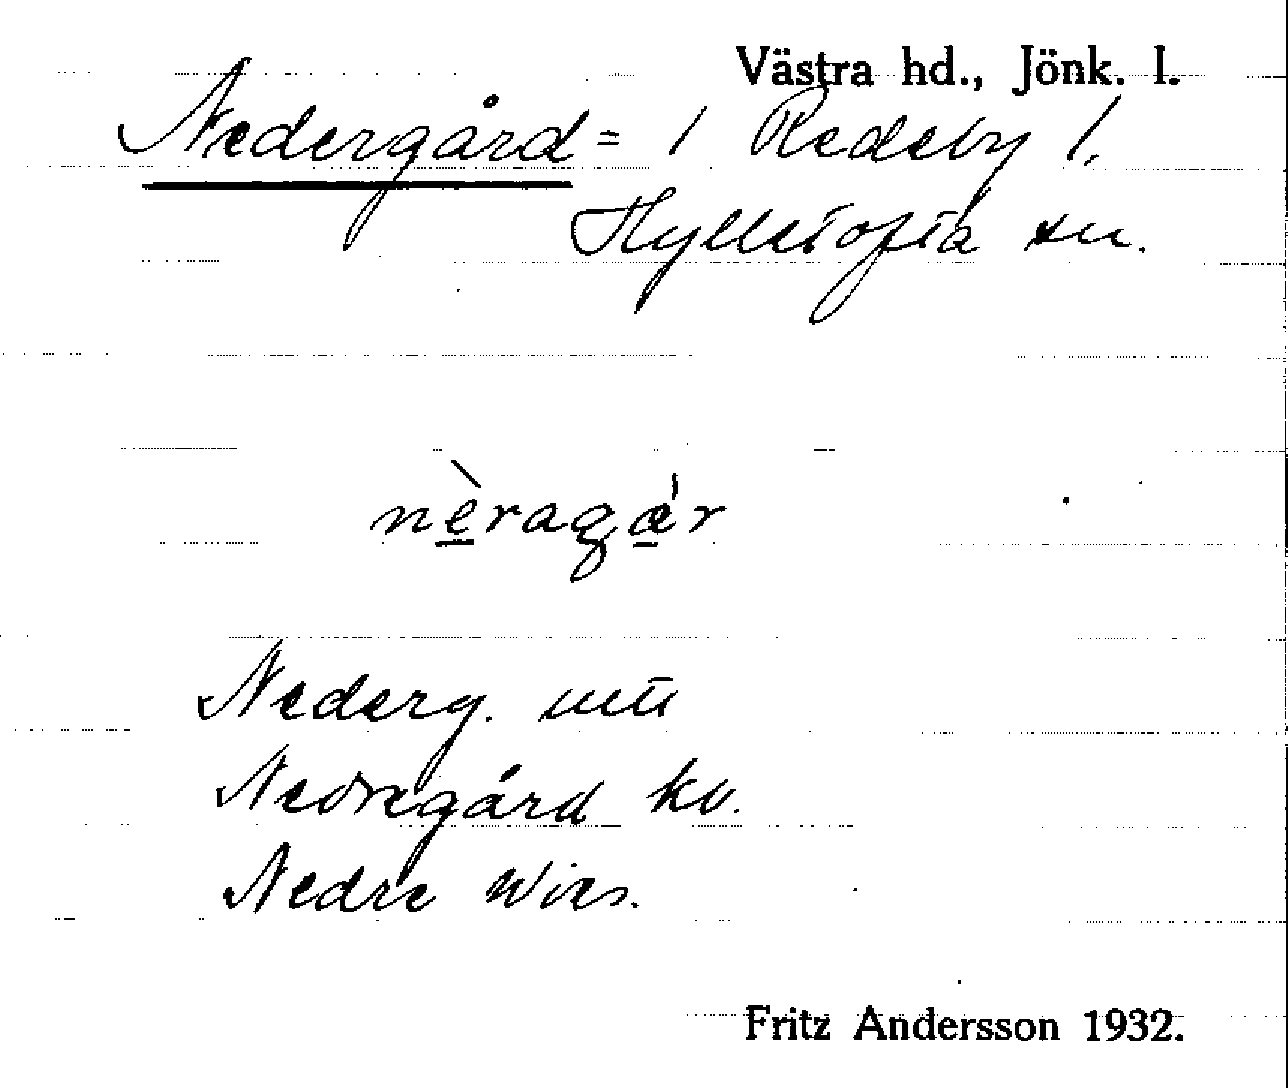 Västra hd., Jönk. l.
Nedergård = 1 Redeby 1,
Hylletofta sn.
nèragár
Nederg. mtl
Nedregård kv.
Nedre Wies.
Fritz Andersson 1932.